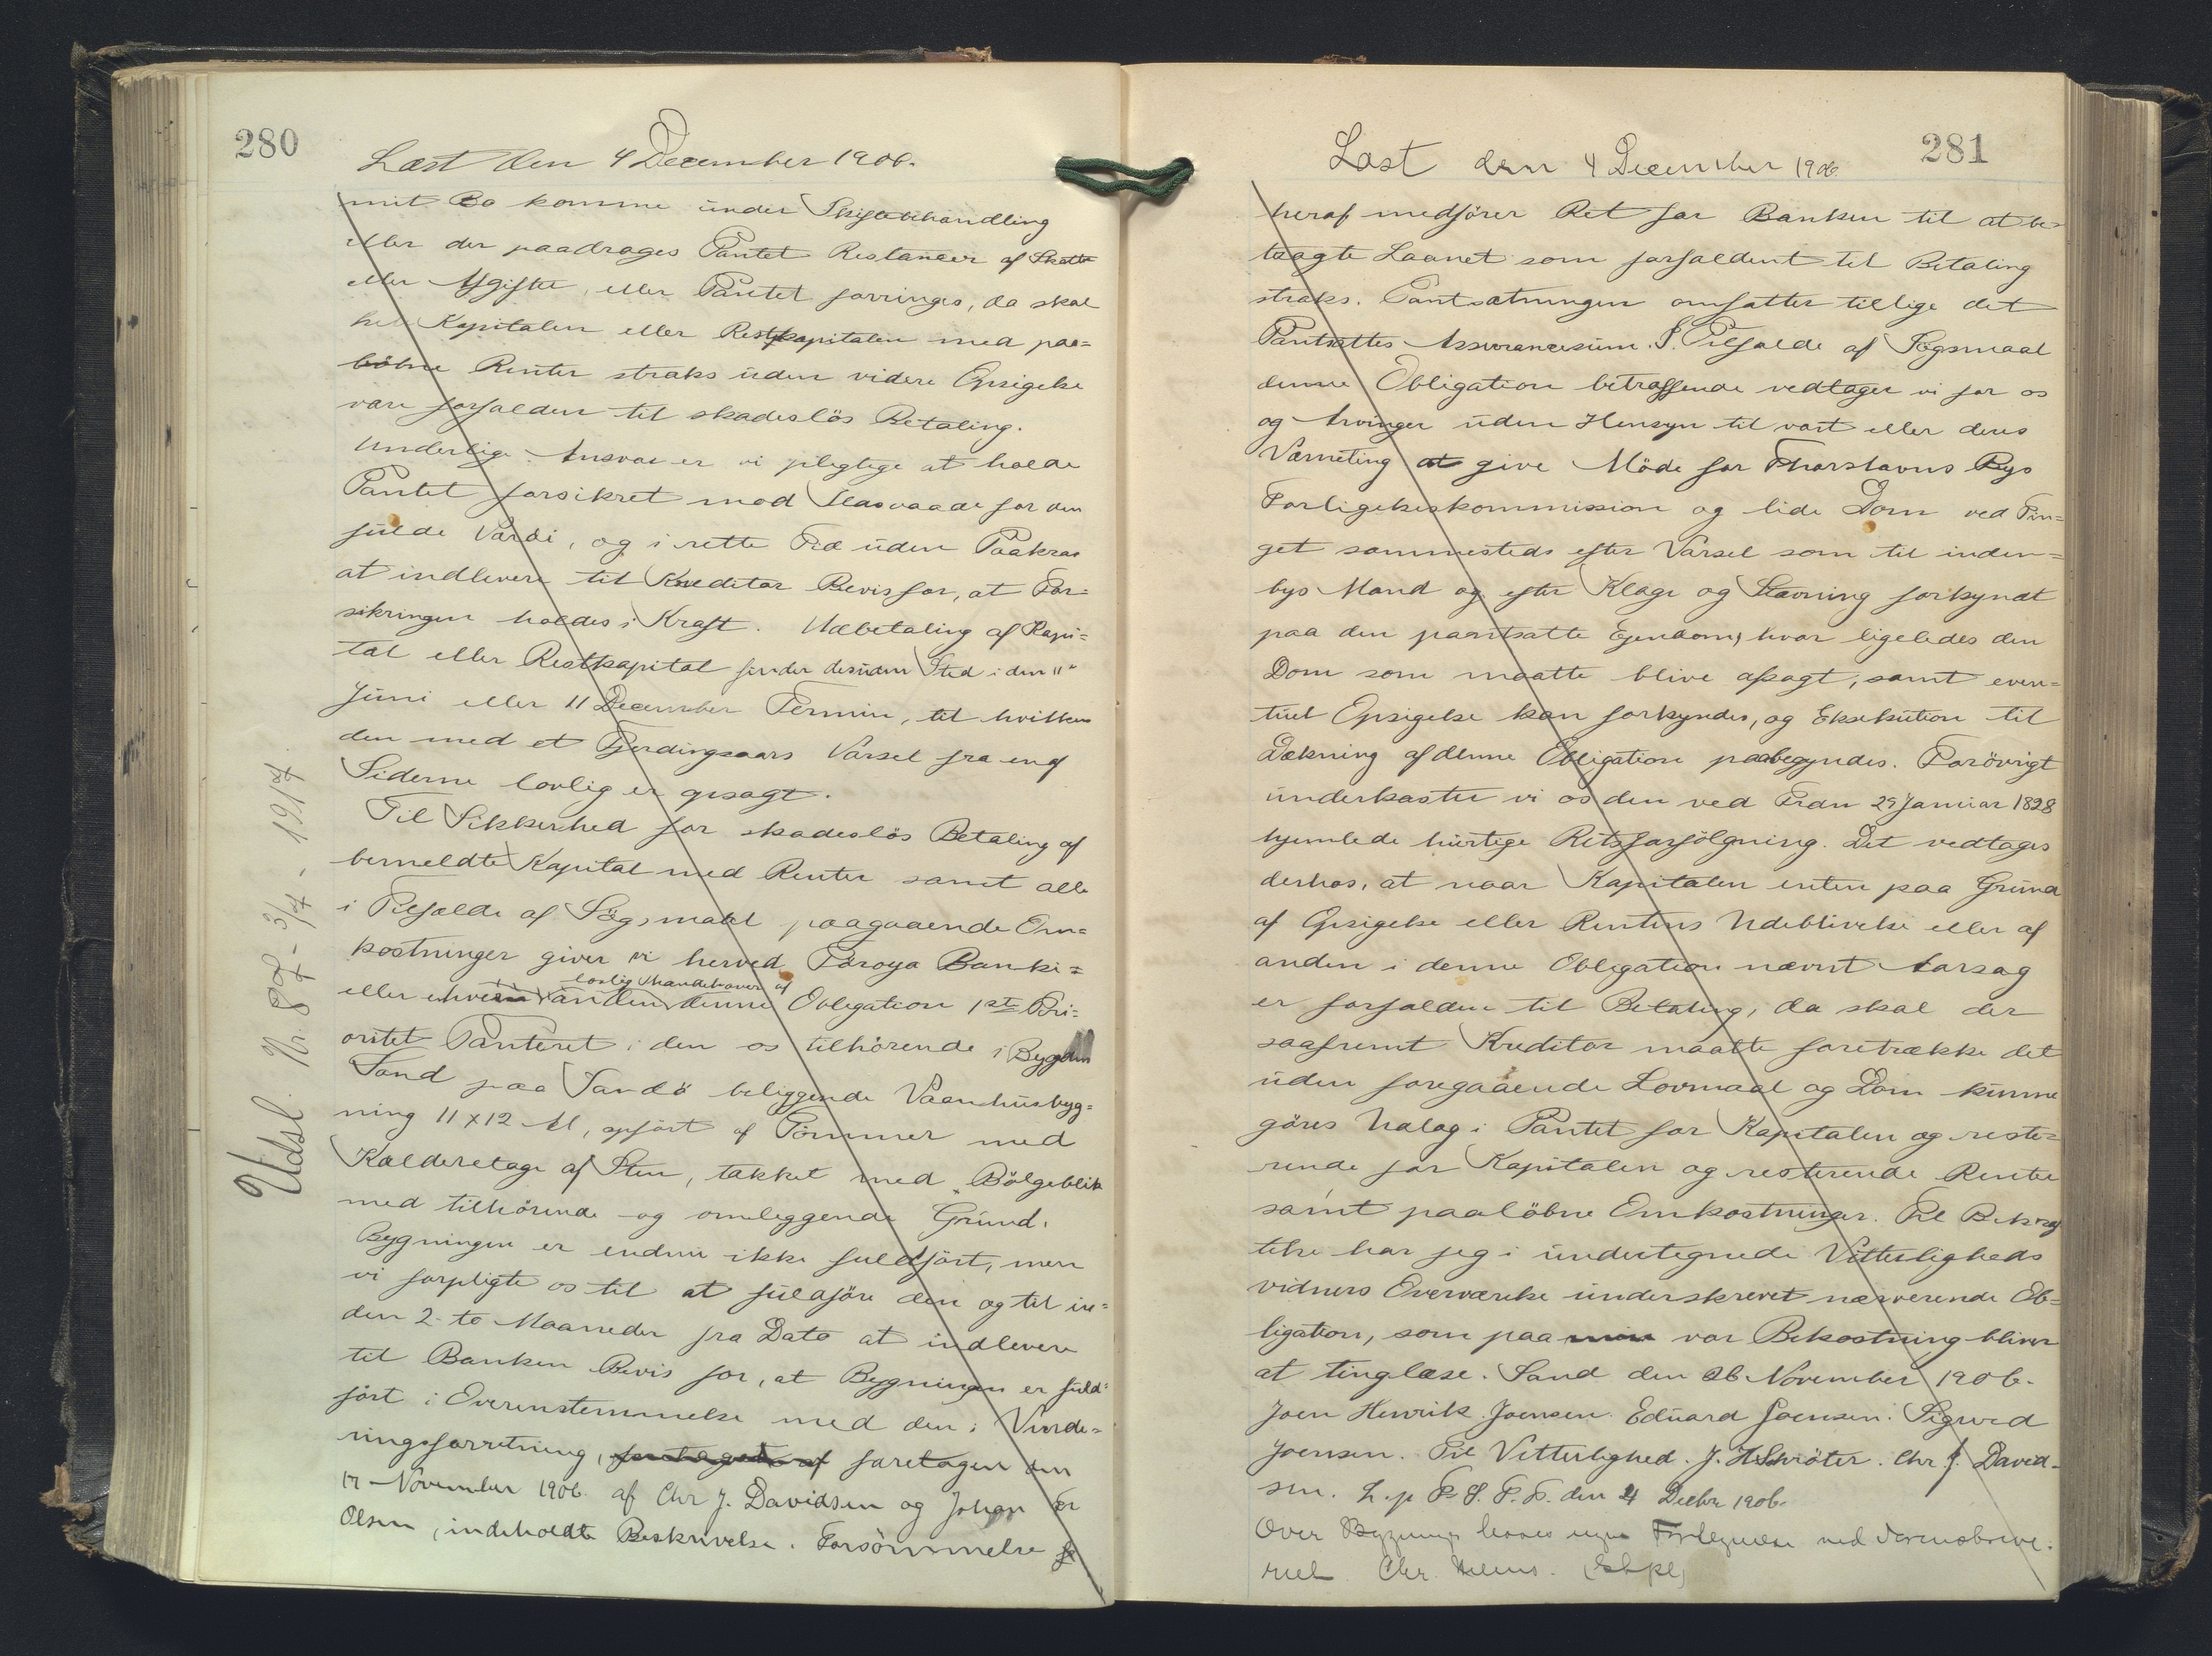 280
Læst den 4 December 1906.
mit Bo komme under Skiftebehandling
eller der paadrages Pantet Restancer af Skatte
eller Afgifter, eller Pantet forringes, da skal
hele Kapitalen eller Restkapitalen med paa=
løbne Renter straks uden videre Opsigelse
være forfalden til skadeslös Betaling.
Underlige Ansvar er vi pligtige at holde
Pantet forsikret mod Ildsvaade for den
fulde Værdi, og i rette Tid uden Paakrav
at indlevere til Kreditor Bevis for, at For=
sikringen holdes i Kraft. Udbetaling af Kapi=
tal eller Restkapital finder desuden Sted i den 11te
Juni eller 11 December Termin, til hvilken
den med et Fjerdingsaars Varsel fra en af
Siderne lovlig er opsagt.
Til Sikkerhed for skadeslös Betaling af
bemeldte Kapital med Renter samt alle
i Tilfælde af Sögsmaal paagaaende Om=
kostninger giver vi herved Föroya Banki=
lovlig Ihændehaver af
eller enhver anden denne Obligation 1ste Pri=
oritet Panteret i den os tilhörende i Bygden
Sand paa Sandö beliggende Vaanhusbyg=
ning 11 x 12 Al, opfört af Tömmer med
Kælderetage af Sten, tækket med Bölgeblik
med tilhörende og omliggende Grund.
Bygningen er endnu ikke fuldfört, men
vi forpligte os til at fuldföre den og til in=
den 2 to Maaneder fra Dato at indlevere
til Banken Bevis for, at Bygningen er fuld=
fört i Overenstemmelse med den i Vurde=
ringsforretning, foretaget af foretagen den
17 November 1906. af Chr J. Davidsen og Johan Fr
Olsen, indeholdte Beskrivelse. Forsömmelse
Udsl. Nr. 87 - 3/4 - 1917
281
Læst den 4 December 1906.
heraf medförer Ret for Banken til at be=
tragte Laanet som forfaldent til Betaling
straks. Pantsætningen omfatter tillige det
Pantsattes Assurancesum. I Tilfælde af Sögsmaal
denne Obligation betræffende vedtager vi for os
og Arvinger uden Hensyn til vort eller deres
Værneting at give Möde for Thorshavns Bys
Forligelseskommission og lide Dom ved Tin=
get sammesteds efter Varsel som til inden=
bys Mand og efter Klage og Stævning forkyndt
paa den pantsatte Ejendom, hvor ligeledes den
Dom som maatte blive afsagt, samt even=
tuel Opsigelse kan forkyndes, og Eksekution til
Dækning af denne Obligation paabegyndes. Forövrigt
underkaster vi os den ved Frdn 29 Januar 1828
hjemlede hurtige Retsforfölgning. Det vedtages
derhos, at naar Kapitalen enten paa Grund
af Opsigelse eller Rentens Udeblivelse eller af
anden i denne Obligation nævnt Aarsag
er forfalden til Betaling, da skal der
saafremt Kreditor maatte foretrække det
uden foregaaende Lovmaal og Dom kunne
göres Udlæg i Pantet for Kapitalen og reste=
rende for Kapitalen og resterende Renter
samt paalöbne Omkostninger. Til Bekræf
telse har jeg i undertegnede Vitterligheds
vidners Overværelse underskrevet nærværende Ob=
ligation, som paa min vor Bekostning bliver
at tinglæse. Sand den 26 November 1906.
Joen Henrik Joensen. Eduard Joensen. Sigurd
Joensen. Til Vitterlighed. J. H Schröter. Chr J. David-
sen. L. p F. S. P. F. den 4 Decbr 1906.
Over Bygninger haves ingen
Chr.